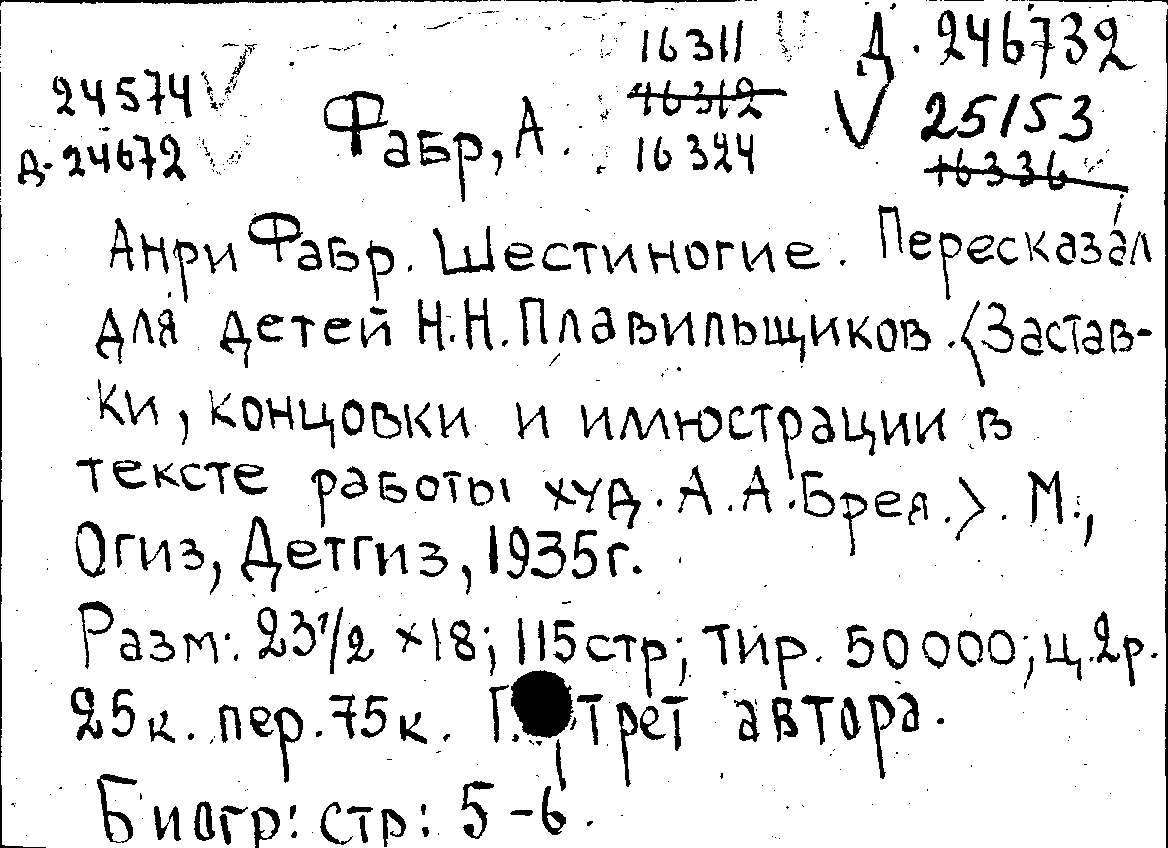 16311 Д. 246732
24574 16312 25153
Д. 24672 Фабр, А. 16324 16336
Анри Фабр. Шестиногие. Пересказал
для детей Н.Н. Плавильщиков. <Застав-
ки, концовки и иллюстрации в
тексте работы худ. А.А. Брея.>. М.,
Огиз, Детгиз, 1935г.
Разм: 23 1/2 x18; 115стр; тир. 50000; ц. 2р.
25к. пер. 75к. автора.
Биогр: стр: 5-6.